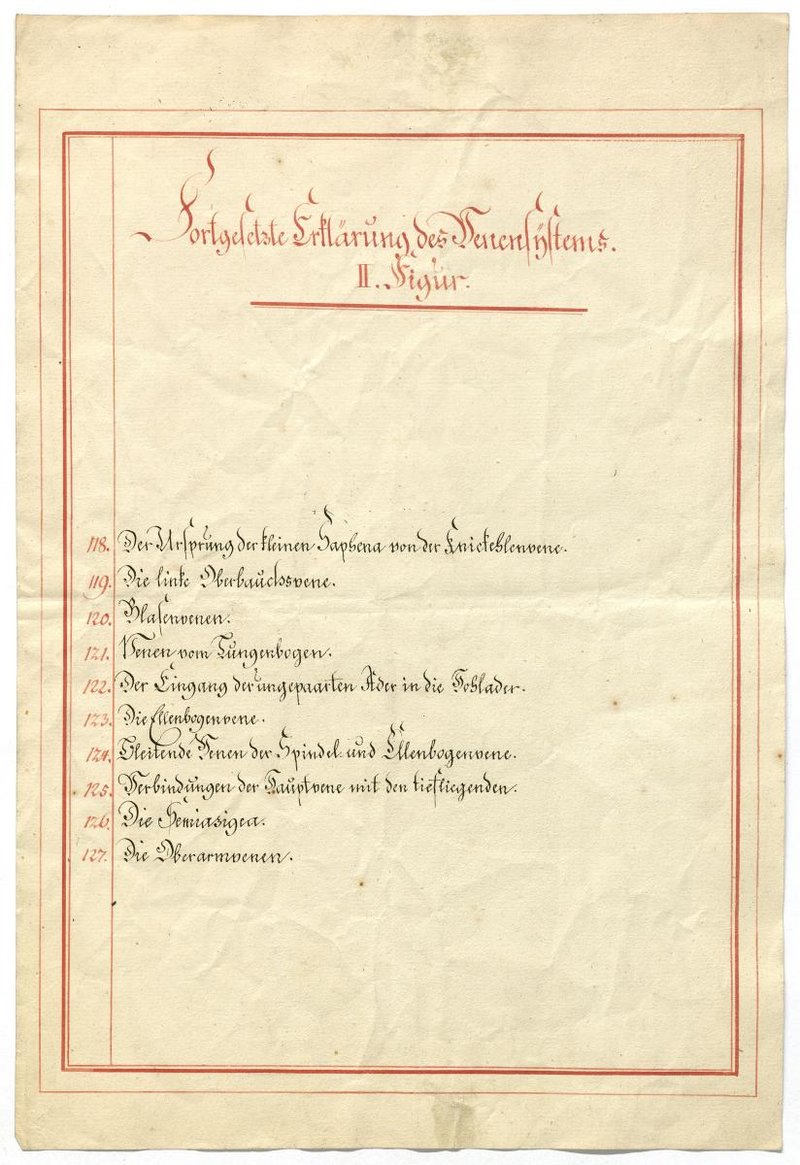 Fortgesetzte Erklärung des Venensÿstems.
II. Figur.
118. Der Ursprung der kleinen Saphena von der Kniekehlenvene.
119. Die linke Oberbauchsvene.
120. Blasenvenen.
121. Venen vom Zungenbogen.
122. Der Eingang der ungepaarten Ader in die Hohlader.
123. Die Ellenbogenvene.
124. Gleitende Venen der Spindel und Ellenbogenvene.
125. Verbindungen der Hauptvene mit den tiefliegenden.
126. Die Hemiasigea.
127. Die Oberarmvenen.